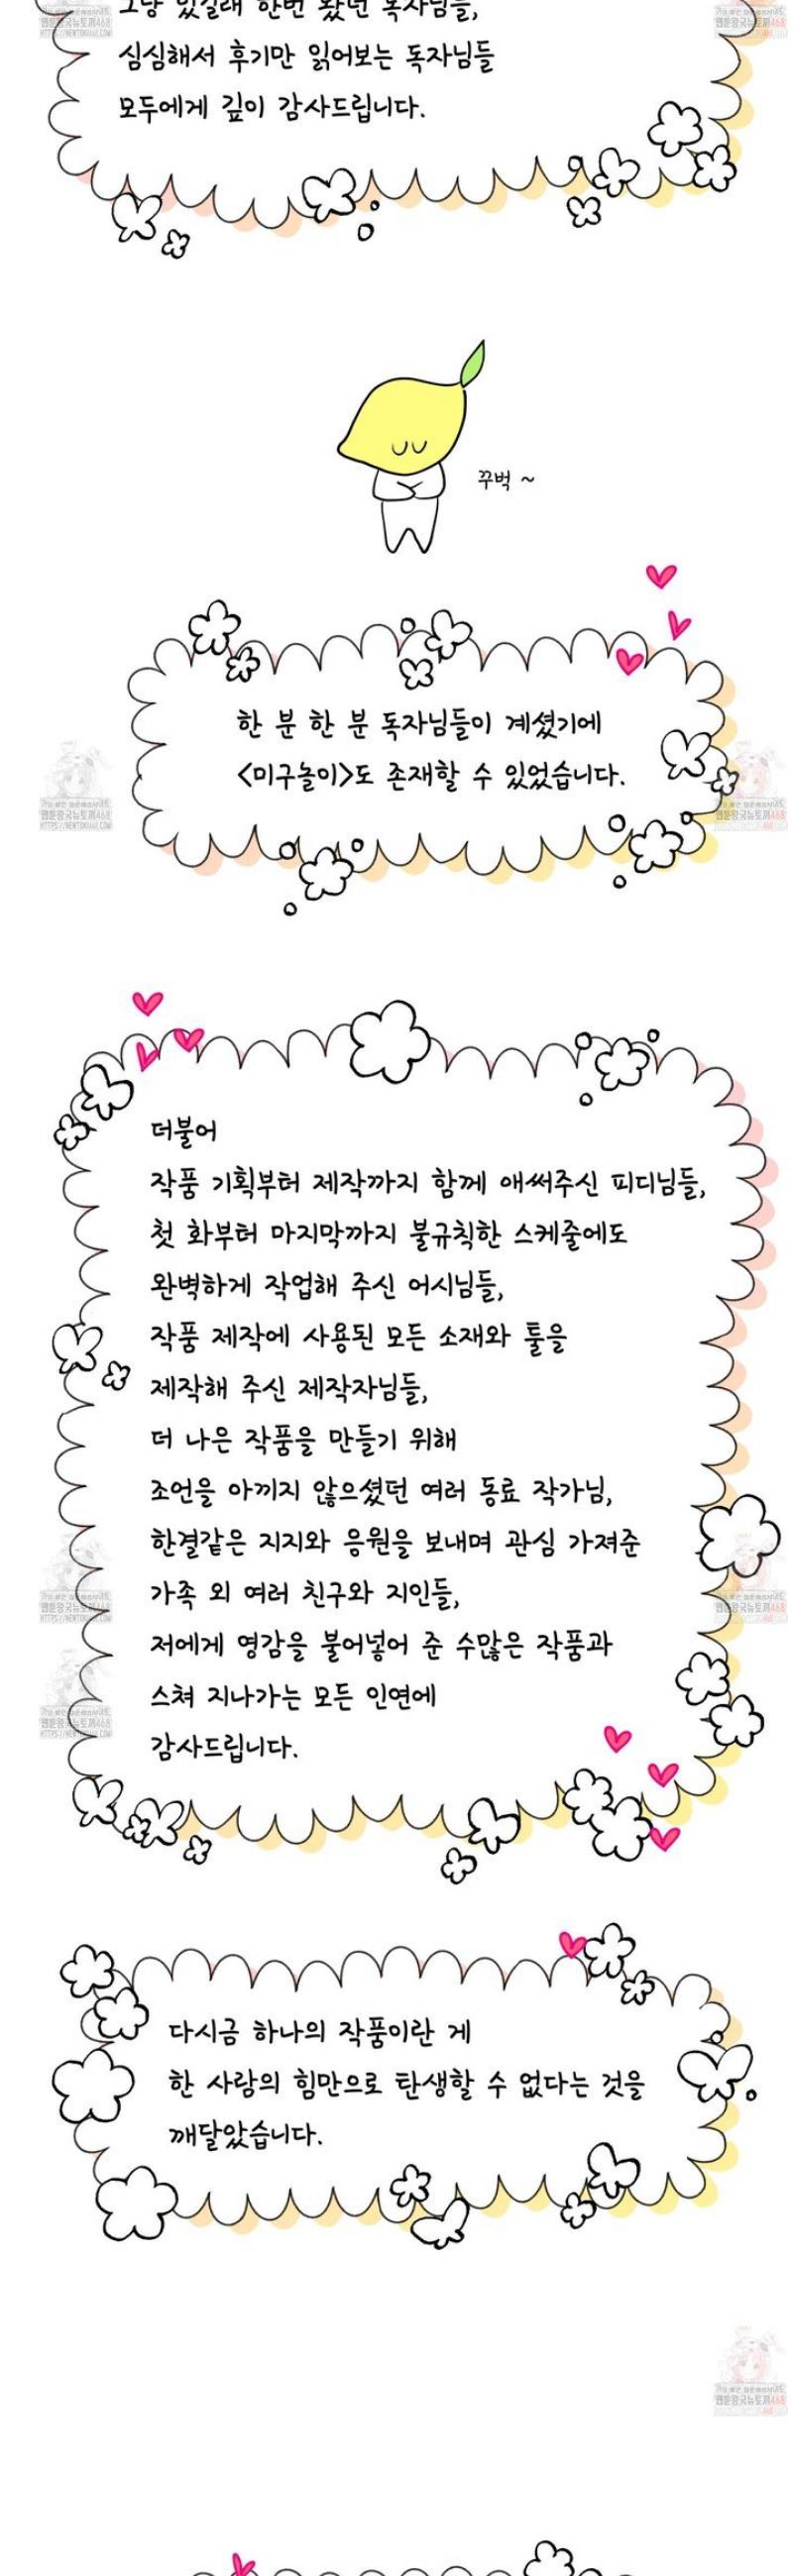 그냥 있길래 한번 봤던 독자님들,
심심해서 후기만 읽어보는 독자님들
모두에게 깊이 감사드립니다.
꾸벅 ~
한 분 한 분 독자님들이 계셨기에
<미구놀이>도 존재할 수 있었습니다.
더불어
작품 기획부터 제작까지 함께 애써주신 피디님들,
첫 화부터 마지막까지 불규칙한 스케줄에도
완벽하게 작업해 주신 어시님들,
작품 제작에 사용된 모든 소재와 툴을
제작해 주신 제작자님들,
더 나은 작품을 만들기 위해
조언을 아끼지 않으셨던 여러 동료 작가님,
한결같은 지지와 응원을 보내며 관심 가져준
가족 외 여러 친구와 지인들,
저에게 영감을 불어넣어 준 수많은 작품과
스쳐 지나가는 모든 인연에
감사드립니다.
다시금 하나의 작품이란 게
한 사람의 힘만으로 탄생할 수 없다는 것을
깨달았습니다.